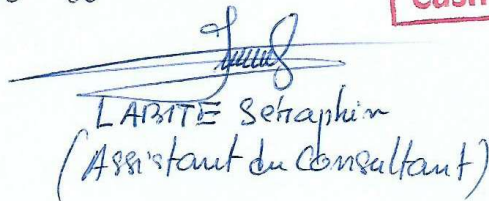 LABITE Séraphin
(Assistant du Consultant)